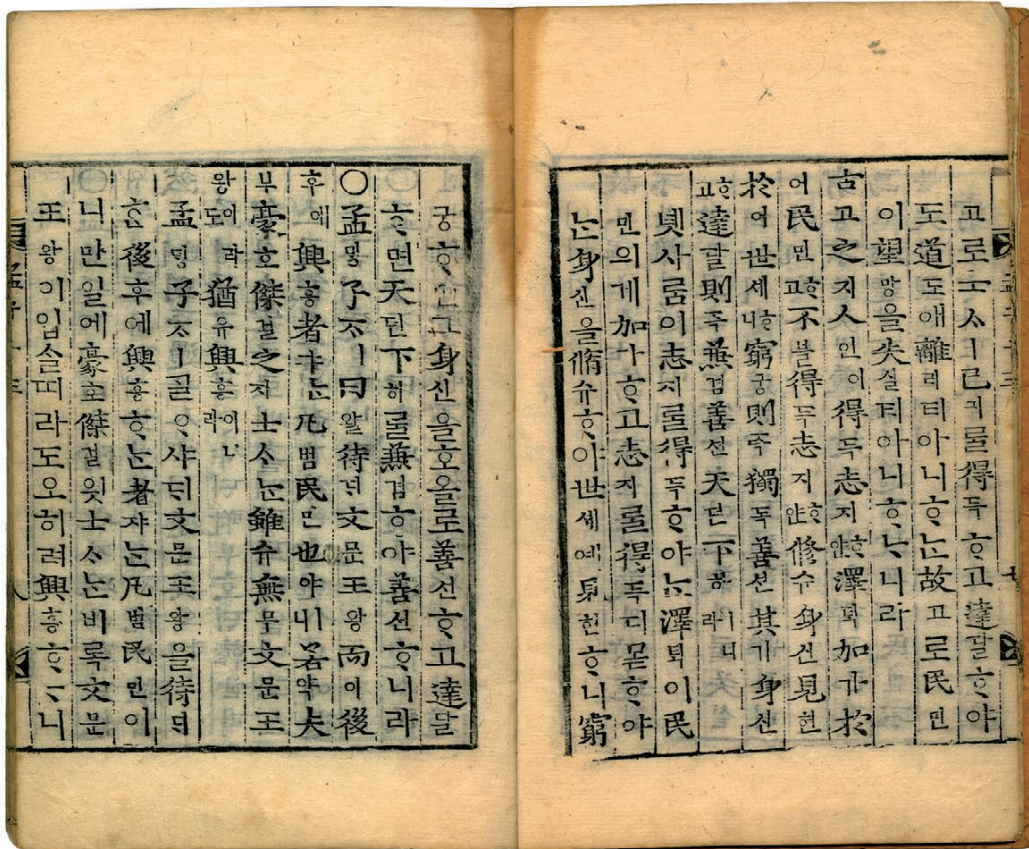 고로士ᄉㅣ己긔ᄅᆞᆯ得득ᄒᆞ고達달ᄒᆞ야
도道도애離리티아니ᄒᆞᄂᆞᆫ故고로民민
이望망을失실티아니ᄒᆞᄂᆞ니라
古고之지人인이得득志지ᄒᆞ얀澤ᄐᆡᆨ加가於
어民민ᄒᆞ고不블得득志지ᄒᆞ얀修슈身신見현
於어世셰ᄒᆞ니窮궁則즉獨독善션其기身신
ᄒᆞ고達달則즉兼겸善션天텬下하ㅣ니라
녯사ᄅᆞᆷ이志지ᄅᆞᆯ得득ᄒᆞ야ᄂᆞᆫ澤ᄐᆡᆨ이民
민의게加가ᄒᆞ고志지ᄅᆞᆯ得득디몯ᄒᆞ야
ᄂᆞᆫ身신을脩슈ᄒᆞ야世셰예見현ᄒᆞ니窮
궁ᄒᆞ면그身신을호올로善션ᄒᆞ고達달
ᄒᆞ면天텬下하ᄅᆞᆯ兼겸ᄒᆞ야善션ᄒᆞ니라
○孟ᄆᆡᆼ子ᄌᆞㅣ曰왈待ᄃᆡ文문王왕而이後
후에興흥者쟈ᄂᆞᆫ凡범民민也야ㅣ니若약夫
부豪호傑걸之지士ᄉᆞᄂᆞᆫ雖슈無무文문王
왕이라도猶유興흥이니라
孟ᄆᆡᆼ子ᄌᆞㅣᄀᆞᆯᄋᆞ샤ᄃᆡ文문王왕을待ᄃᆡ
ᄒᆞᆫ後후에興흥ᄒᆞᄂᆞᆫ者쟈ᄂᆞᆫ凡범民민이
니만일에豪호傑걸읫士ᄉᆞᄂᆞᆫ비록文문
王왕이업슬ᄯᅵ라도오히려興흥ᄒᆞᄂᆞ니